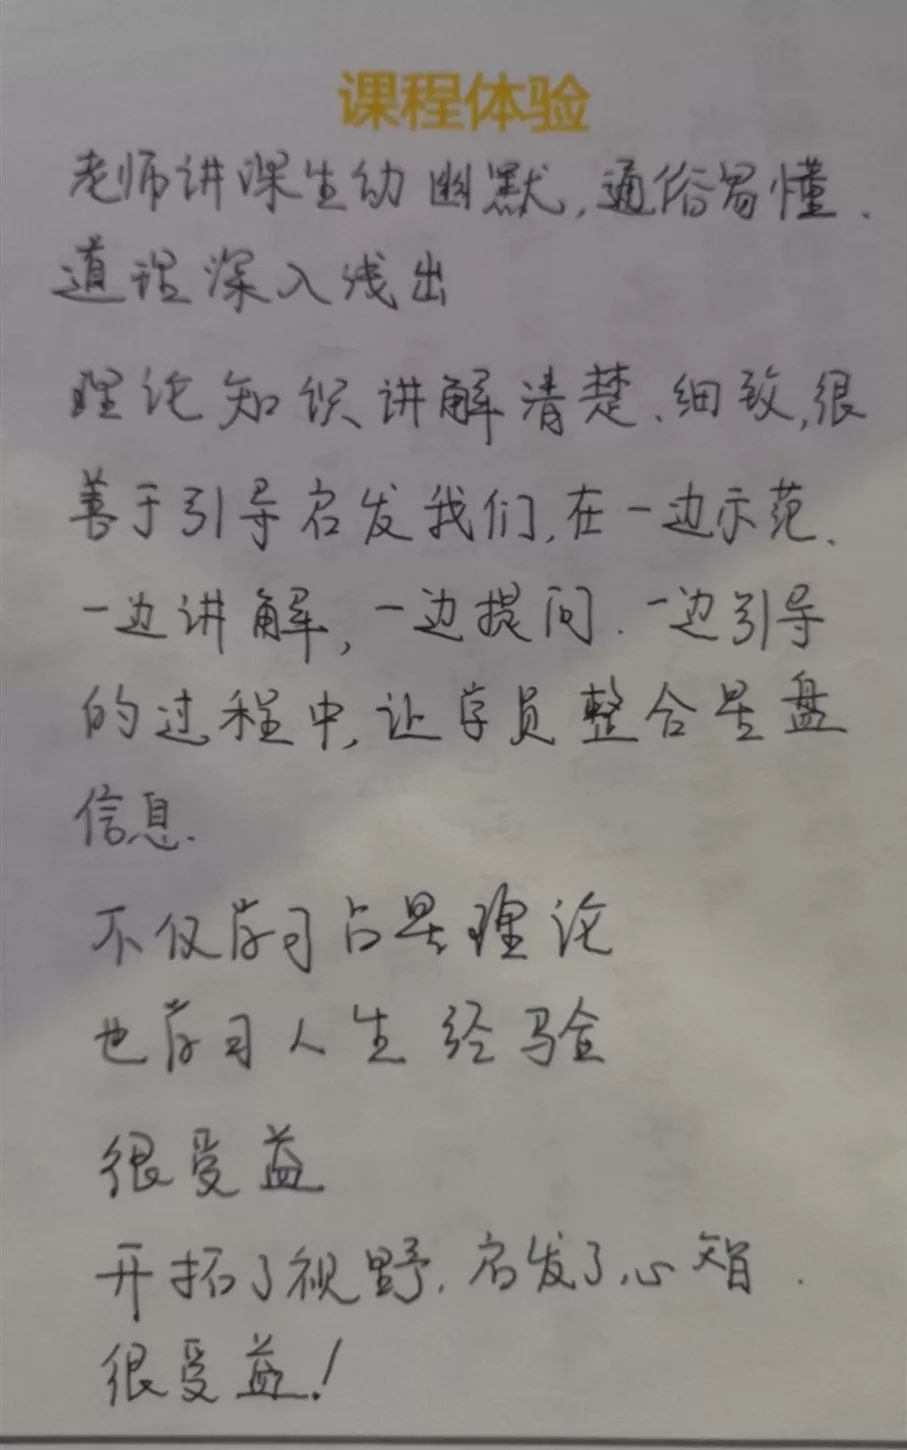 课程体验
老师讲课生动幽默,通俗易懂.
道理深入浅出
理论知识讲解清楚、细致,很
善于引导启发我们,在一边示范、
一边讲解,一边提问.一边引导
的过程中,让学员整合星盘
信息.
不仅学习占星理论
也学习人生经验
很受益
开拓了视野.启发了心智.
很受益!